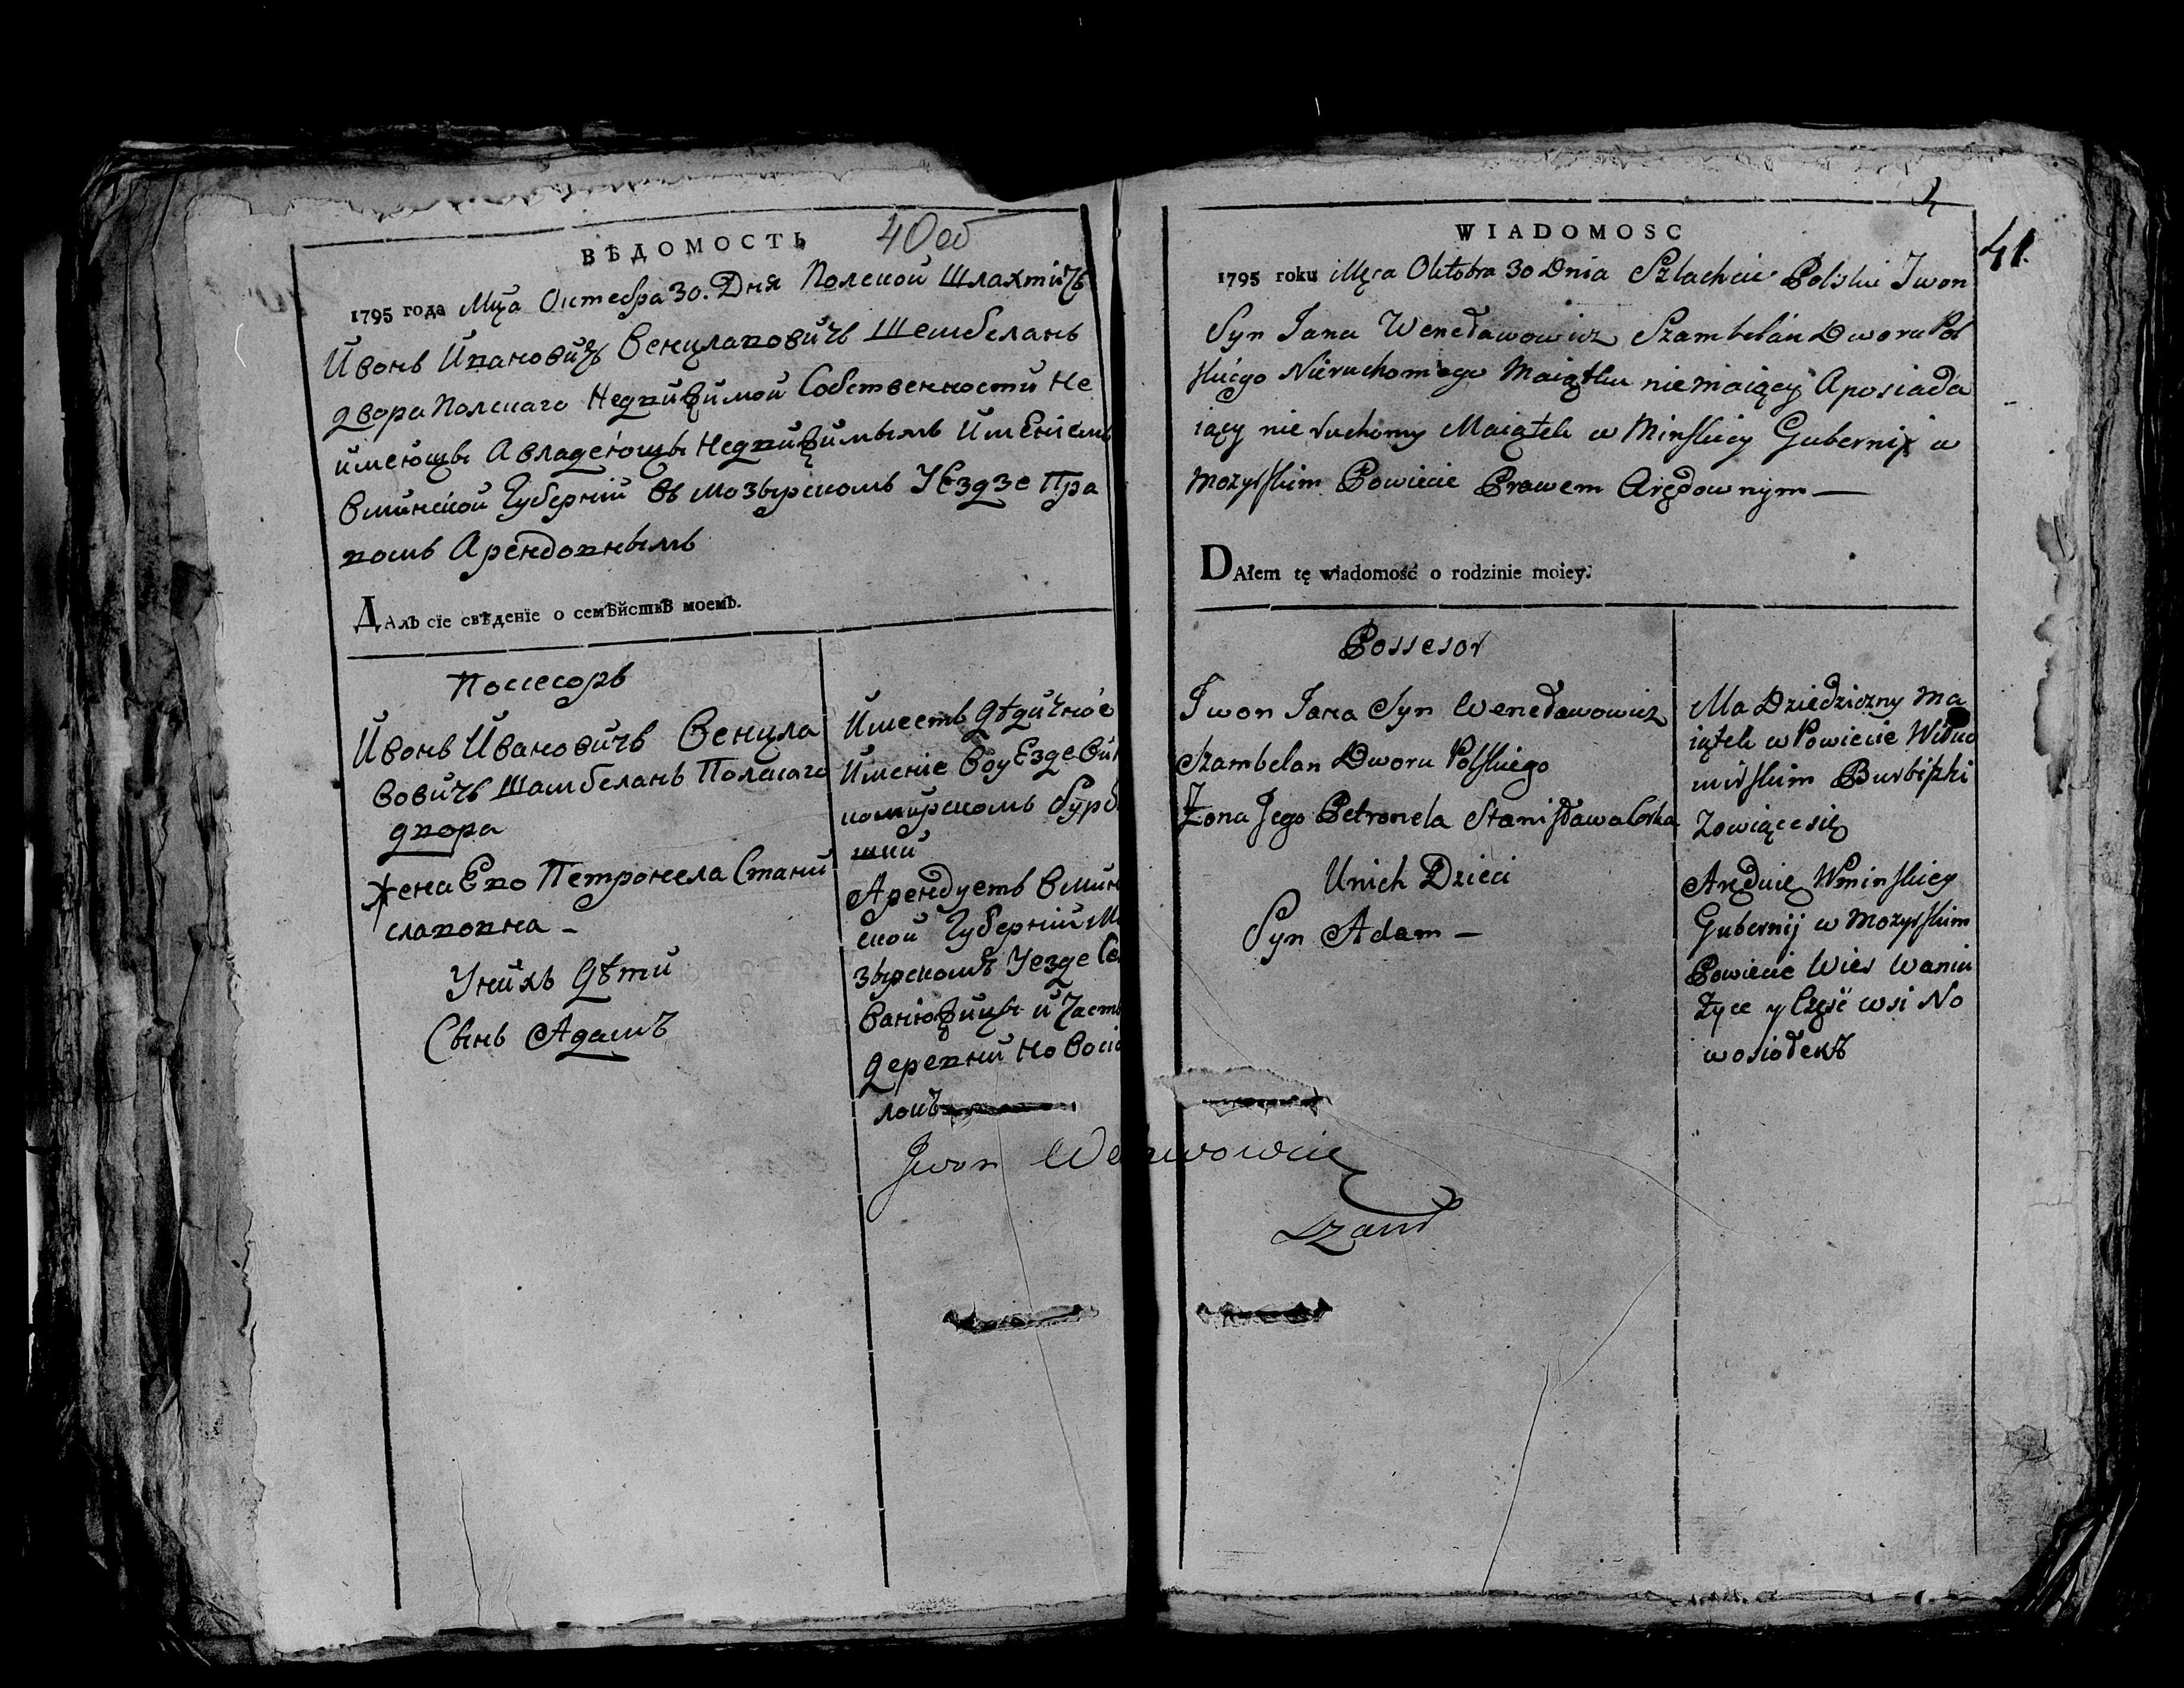 ВѢДОМОСТЬ 40 об
1795 года Мца Октебра 30. Дня Полской Шлахтичъ
Ивонъ Ивановичъ Венцлавовичъ Шембеланъ
двора Полскаго Недвижимой Собственности Не
имеющы А владеющы Недвижимымъ Имениемъ
Вминской Губернии въ Мозырскомъ Уездзе Пра
вомъ Арендовнымъ
ДАлъ сїе свѣденїе о семѣйствѣ моемъ.
Посесоръ
Ивонъ Ивановичъ Венцла
вовичъ Шамбеланъ Полскаго
двора
Жена Его Петронела Стани
славовна -
Унихъ Дѣти
Сынъ Адамъ
Имеетъ Дѣдичное
Имение Воу Езде Вил
комирскомъ Бурб
шки
Арендуетъ Вмин
ской Губернии Мо
зырскомъ Уезде Се
Ванюжицы и Часть
деревни Новосио
локъ
WIADOMOSC 41.
1795 roku Męca Oktobra 30 Dnia Szlachcic Polski Iwon
Syn Jana Wencławowicz Szambelan Dworu Pol
skiego Nieruchomego Maiątku niemaiący A posiada
iący nie ruchomy Maiątek w Minskiey Gubernij w
Mozyrskim Powiecie Prawem Arędownym —
DAłem tę wiadomość o rodzinie moiey.
Possesor
Iwon Jana Syn Wencławowicz
Szambelan Dworu Polskiego
Żona Jego Petronela Stanisława Corka
Unich Dzieci
Syn Adam —
Ma Dziedziczny Ma
iątek w Powiecie Wiłko
mirskim Burbiszki
Zowiące się
Aręduie Wminskiey
Gubernij w Mozyrskim
Powiecie Wies Waniu
życe y Częśc wsi No
wosiołek
Iwon Wencławowicz
Szam